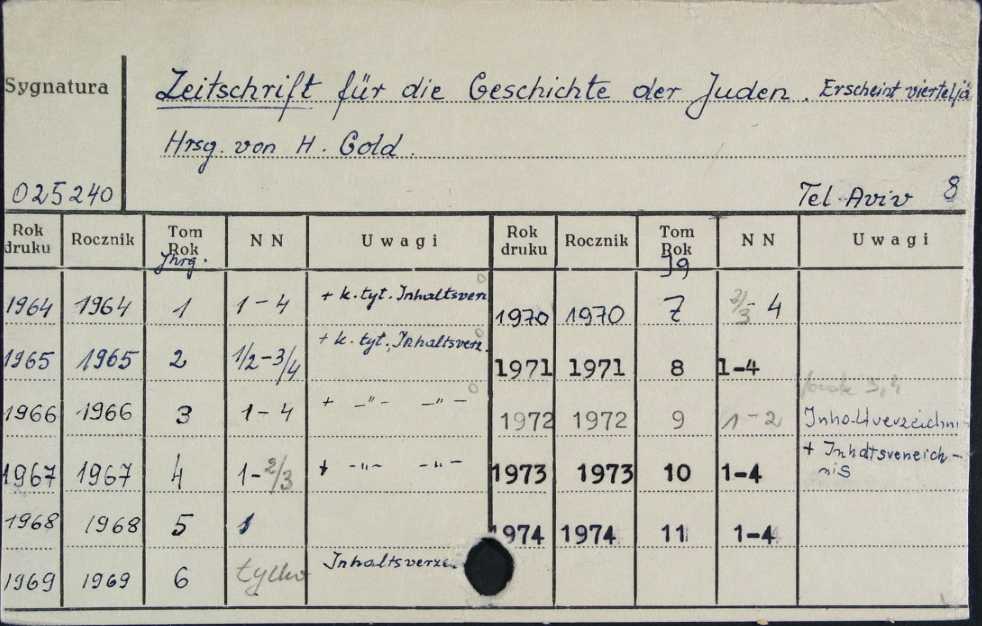 Sygnatura
Zeitschrift für die Geschichte der Juden. Erscheint vierteljä
Hrsg. von H. Gold.
025240
Tel Aviv 8
Rok druku Rocznik Tom Rok Jhrg. NN Uwagi Rok druku Rocznik Tom Rok Jg NN Uwagi
1964 1964 1 1-4 + k. tyt. Inhaltsver 1970 1970 7 2/3 - 4
1965 1965 2 1/2-3/4 + k. tyt. Inhaltsverz. 1971 1971 8 1-4
1966 1966 3 1-4 + -"- -"- 1972 1972 9 1-2 brak 3,4 Inhaltverzeichni
1967 1967 4 1-2/3 + -"- -"- 1973 1973 10 1-4 + Inhaltsverzeich-nis
1968 1968 5 1 1974 1974 11 1-4
1969 1969 6 tylko Inhaltsverze